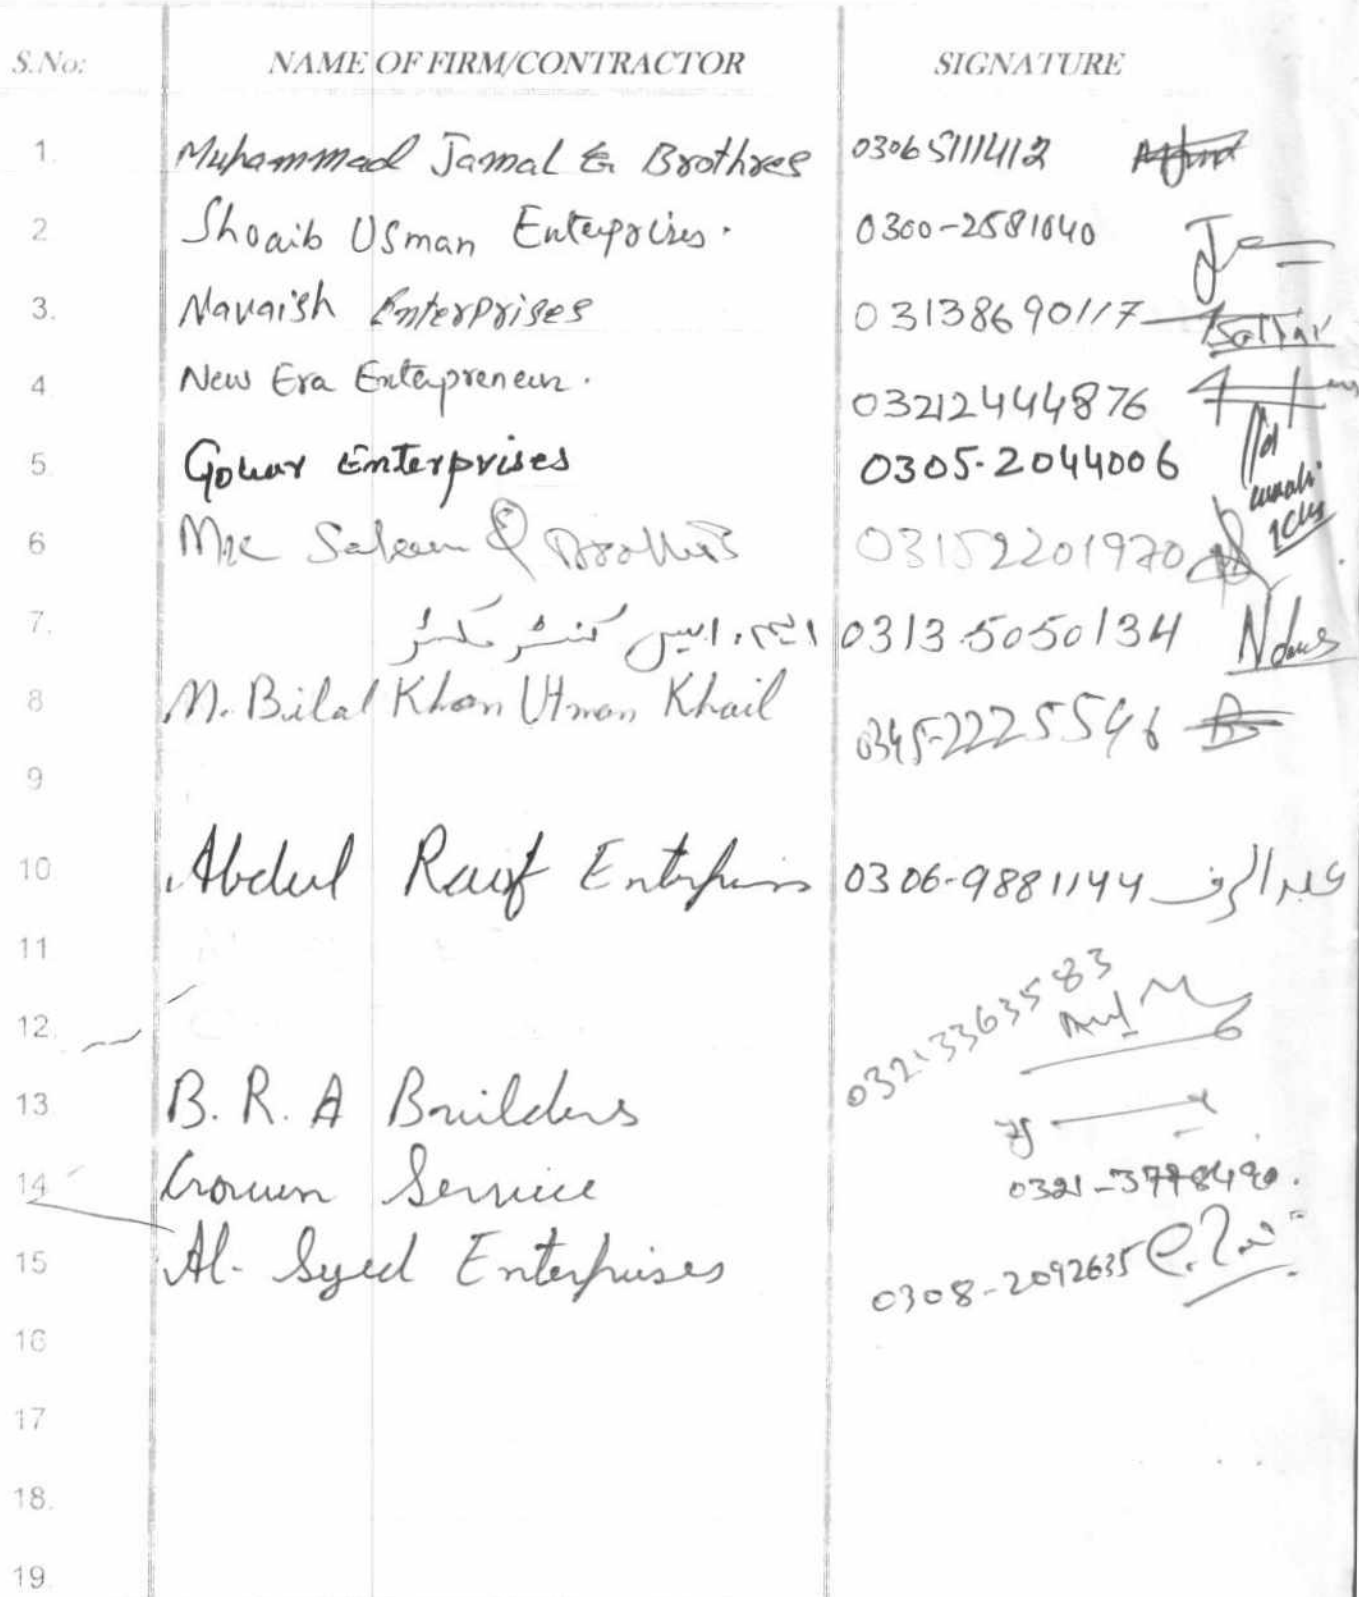 S.No: NAME OF FIRM/CONTRACTOR SIGNATURE
1. Muhammad Jamal & Brothres 03065111412
2 Shoaib Usman Enterprises. 0300-2581040
3. Navaish Enterprises 03138690117 Sattar
4 New Era Enterpreneur. 03212444876
5. Gohar Enterprises 0305-2044006
6 Saleem & Brothers 03152201970
7. ایم، ایس کنسٹرکٹر 0313-5050134
8 M. Bilal Khan Utman Khail 0345-2225546
9
10 Abdul Rauf Enterprises 0306-9881144 عبدالرف
11
12. 0321-3363583
13 B.R.A Builders
14 Crown Service 0321-3778490.
15 Al-Syed Enterprises 0308-2092635
16
17
18.
19